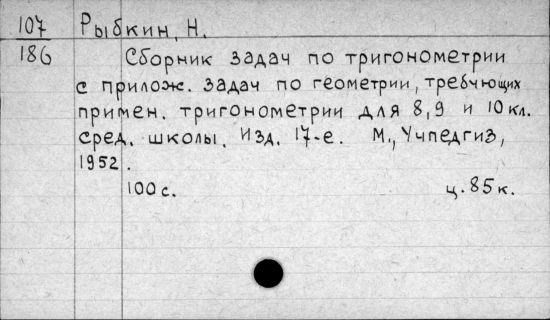 107 Рыбкин, Н.
186 Сборник задач по тригонометрии
с прилож. задач по геометрии, требующих
примен. тригонометрии для 8,9 и 10 кл.
сред. школы. Изд. 17-е. М., Учпедгиз,
1952.
100 с. ц. 85 к.